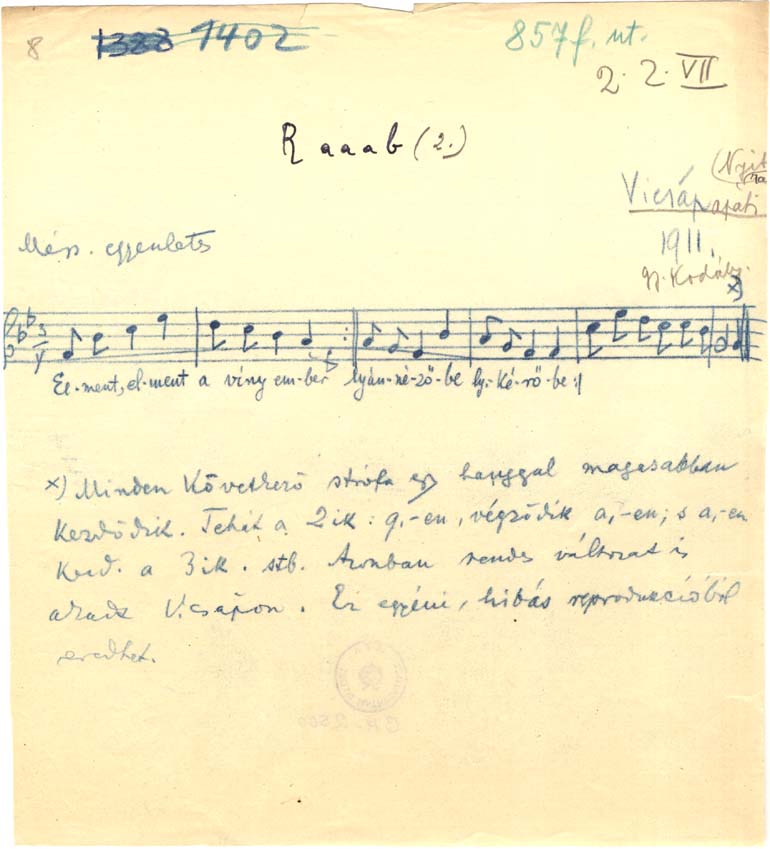 8 1323 1402 857 f. ut.
2. 2. VII
Raaab (2.)
(Nyitra)
Vicsápapáti
1911.
gy. Kodály
Mérs. egyenletes
x)
El-ment, el-ment a víny em-ber lyán-né-ző-be ly.-ké-rő-be :|
x) Minden következő strófa egy hanggal magasabban
kezdődik. Tehát a 2ik : g,-en, végződik a,-en; s a,-en
kezd. a 3ik. stb. Azonban rendes változat is
akadt V.csápon. Ez egyéni, hibás reprodukcióból
eredhet.